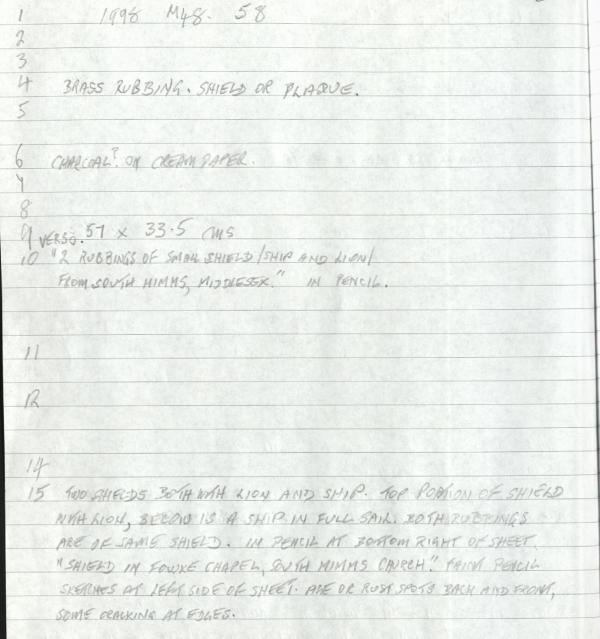 1 1998 M48. 58
2
3
4 BRASS RUBBING. SHIELD OR PLAQUE.
5
6 CHARCOAL? ON CREAM PAPER.
7
8
9 VERSO. 57 x 33.5 CMS
10 "2 RUBBINGS OF SMALL SHIELD/SHIP AND LION/
FROM SOUTH MIMMS, MIDDLESEX." IN PENCIL.
11
12
14
15 TWO SHIELDS BOTH WITH LION AND SHIP. TOP PORTION OF SHIELD
WITH LION, BELOW IS A SHIP IN FULL SAIL. BOTH RUBBINGS
ARE OF SAME SHIELD. IN PENCIL AT BOTTOM RIGHT OF SHEET
"SHIELD IN FOWKE CHAPEL, SOUTH MIMMS CHURCH". FAINT PENCIL
SKETCHES AT LEFT SIDE OF SHEET. AGE OR RUST SPOTS BACH AND FRONT,
SOME CRACKING AT EDGES.